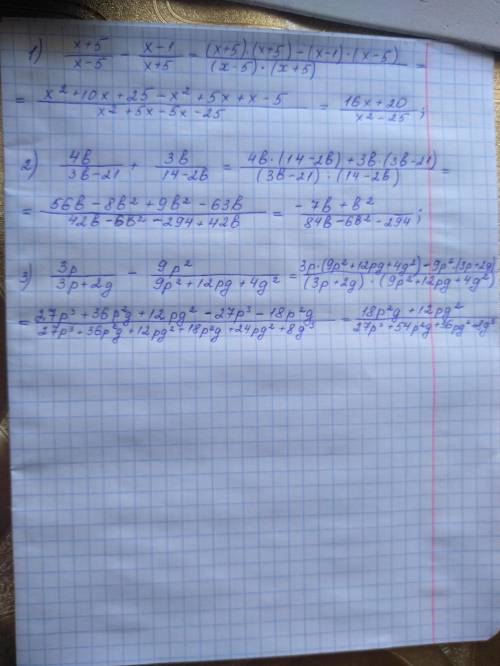 1) (x+5)/(x-5) - (x-1)/(x+5) = ((x+5)·(x+5)-(x-1)·(x-5))/((x-5)·(x+5)) =
= (x²+10x+25-x²+5x+x-5)/(x²+5x-5x-25) = (16x+20)/(x²-25);
2) 4b/(3b-21) + 3b/(14-2b) = (4b·(14-2b)+3b·(3b-21))/((3b-21)·(14-2b)) =
= (56b-8b²+9b²-63b)/(42b-6b²-294+42b) = (-7b+b²)/(84b-6b²-294);
3) 3p/(3p+2g) - 9p²/(9p²+12pg+4g²) = (3p·(9p²+12pg+4g²)-9p²·(3p+2g))/((3p+2g)·(9p²+12pg+4g²))
= (27p³+36p²g+12pg²-27p³-18p²g)/(27p³+36p²g+12pg²+18p²g+24pg²+8g³) = (18p²g+12pg²)/(27p³+54p²g+36pg²+8g³)